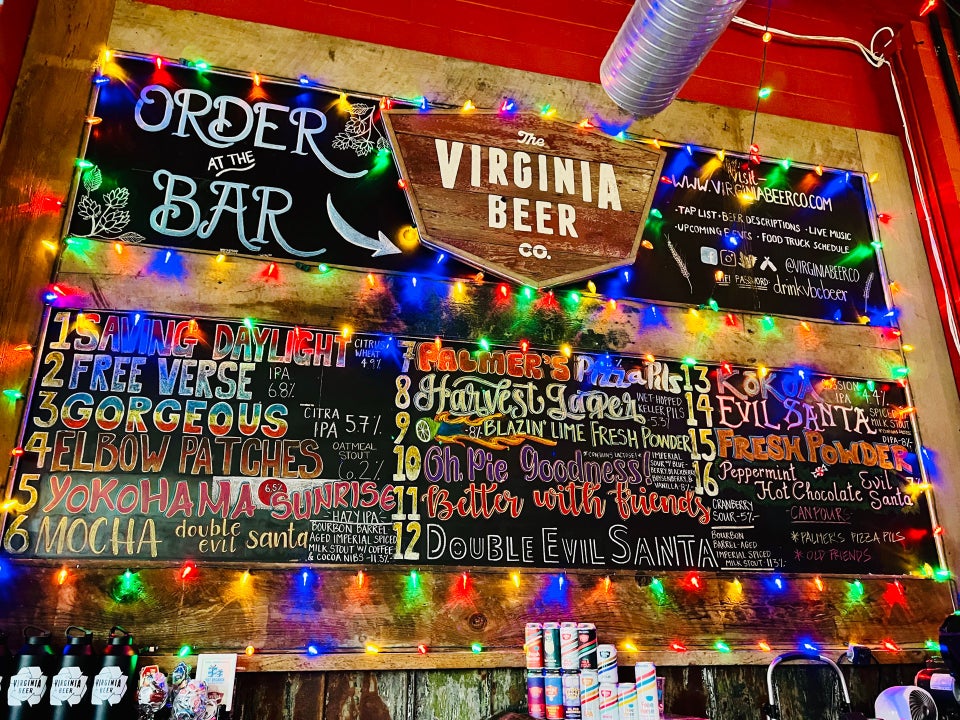 ORDER
AT THE
BAR
The
VIRGINIA
BEER
CO.
Visit
WWW.VIRGINIABEERCO.COM
• TAP LIST • BEER DESCRIPTIONS • LIVE MUSIC
• UPCOMING EVENTS • FOOD TRUCK SCHEDULE
@VIRGINIABEERCO
WIFI PASSWORD: drinkvbcbeer
1 SAVING DAYLIGHT CITRUS
WHEAT
4.9%
2 FREE VERSE IPA
6.8%
3 GORGEOUS CITRA
IPA 5.7%
4 ELBOW PATCHES OATMEAL
STOUT
6.2%
5 YOKOHAMA SUNRISE 6.5%
-HAZY IPA-
6 MOCHA double
evil santa
BOURBON BARREL
AGED IMPERIAL SPICED
MILK STOUT W/ COFFEE
& COCOA NIBS - 11.3%
7 PALMER'S Pizza Pils
8 Harvest Lager WET-HOPPED
KELLER PILS
5.3%
9 -8%- BLAZIN' LIME FRESH POWDER
10 Oh, Pie Goodness *CONTAINS LACTOSE*
IMPERIAL
SOUR W/ BLUE-
BERRY, BLACKBERRY,
BOYSENBERRY &
VANILLA 8%
11 Better with friends CRANBERRY
SOUR -5%-
12 DOUBLE EVIL SANTA BOURBON
BARREL-AGED
IMPERIAL SPICED
MILK STOUT -11.3%-
13 SESSION
IPA 4.4%
14 EVIL SANTA SPICED
MILK STOUT
15 FRESH POWDER DIPA-8%
16 Peppermint Evil
Hot Chocolate Santa
-CAN POURS-
*PALMER'S PIZZA PILS
*OLD FRIENDS
VIRGINIA
BEER
VIRGINIA
BEER
VIRGINIA
BEER